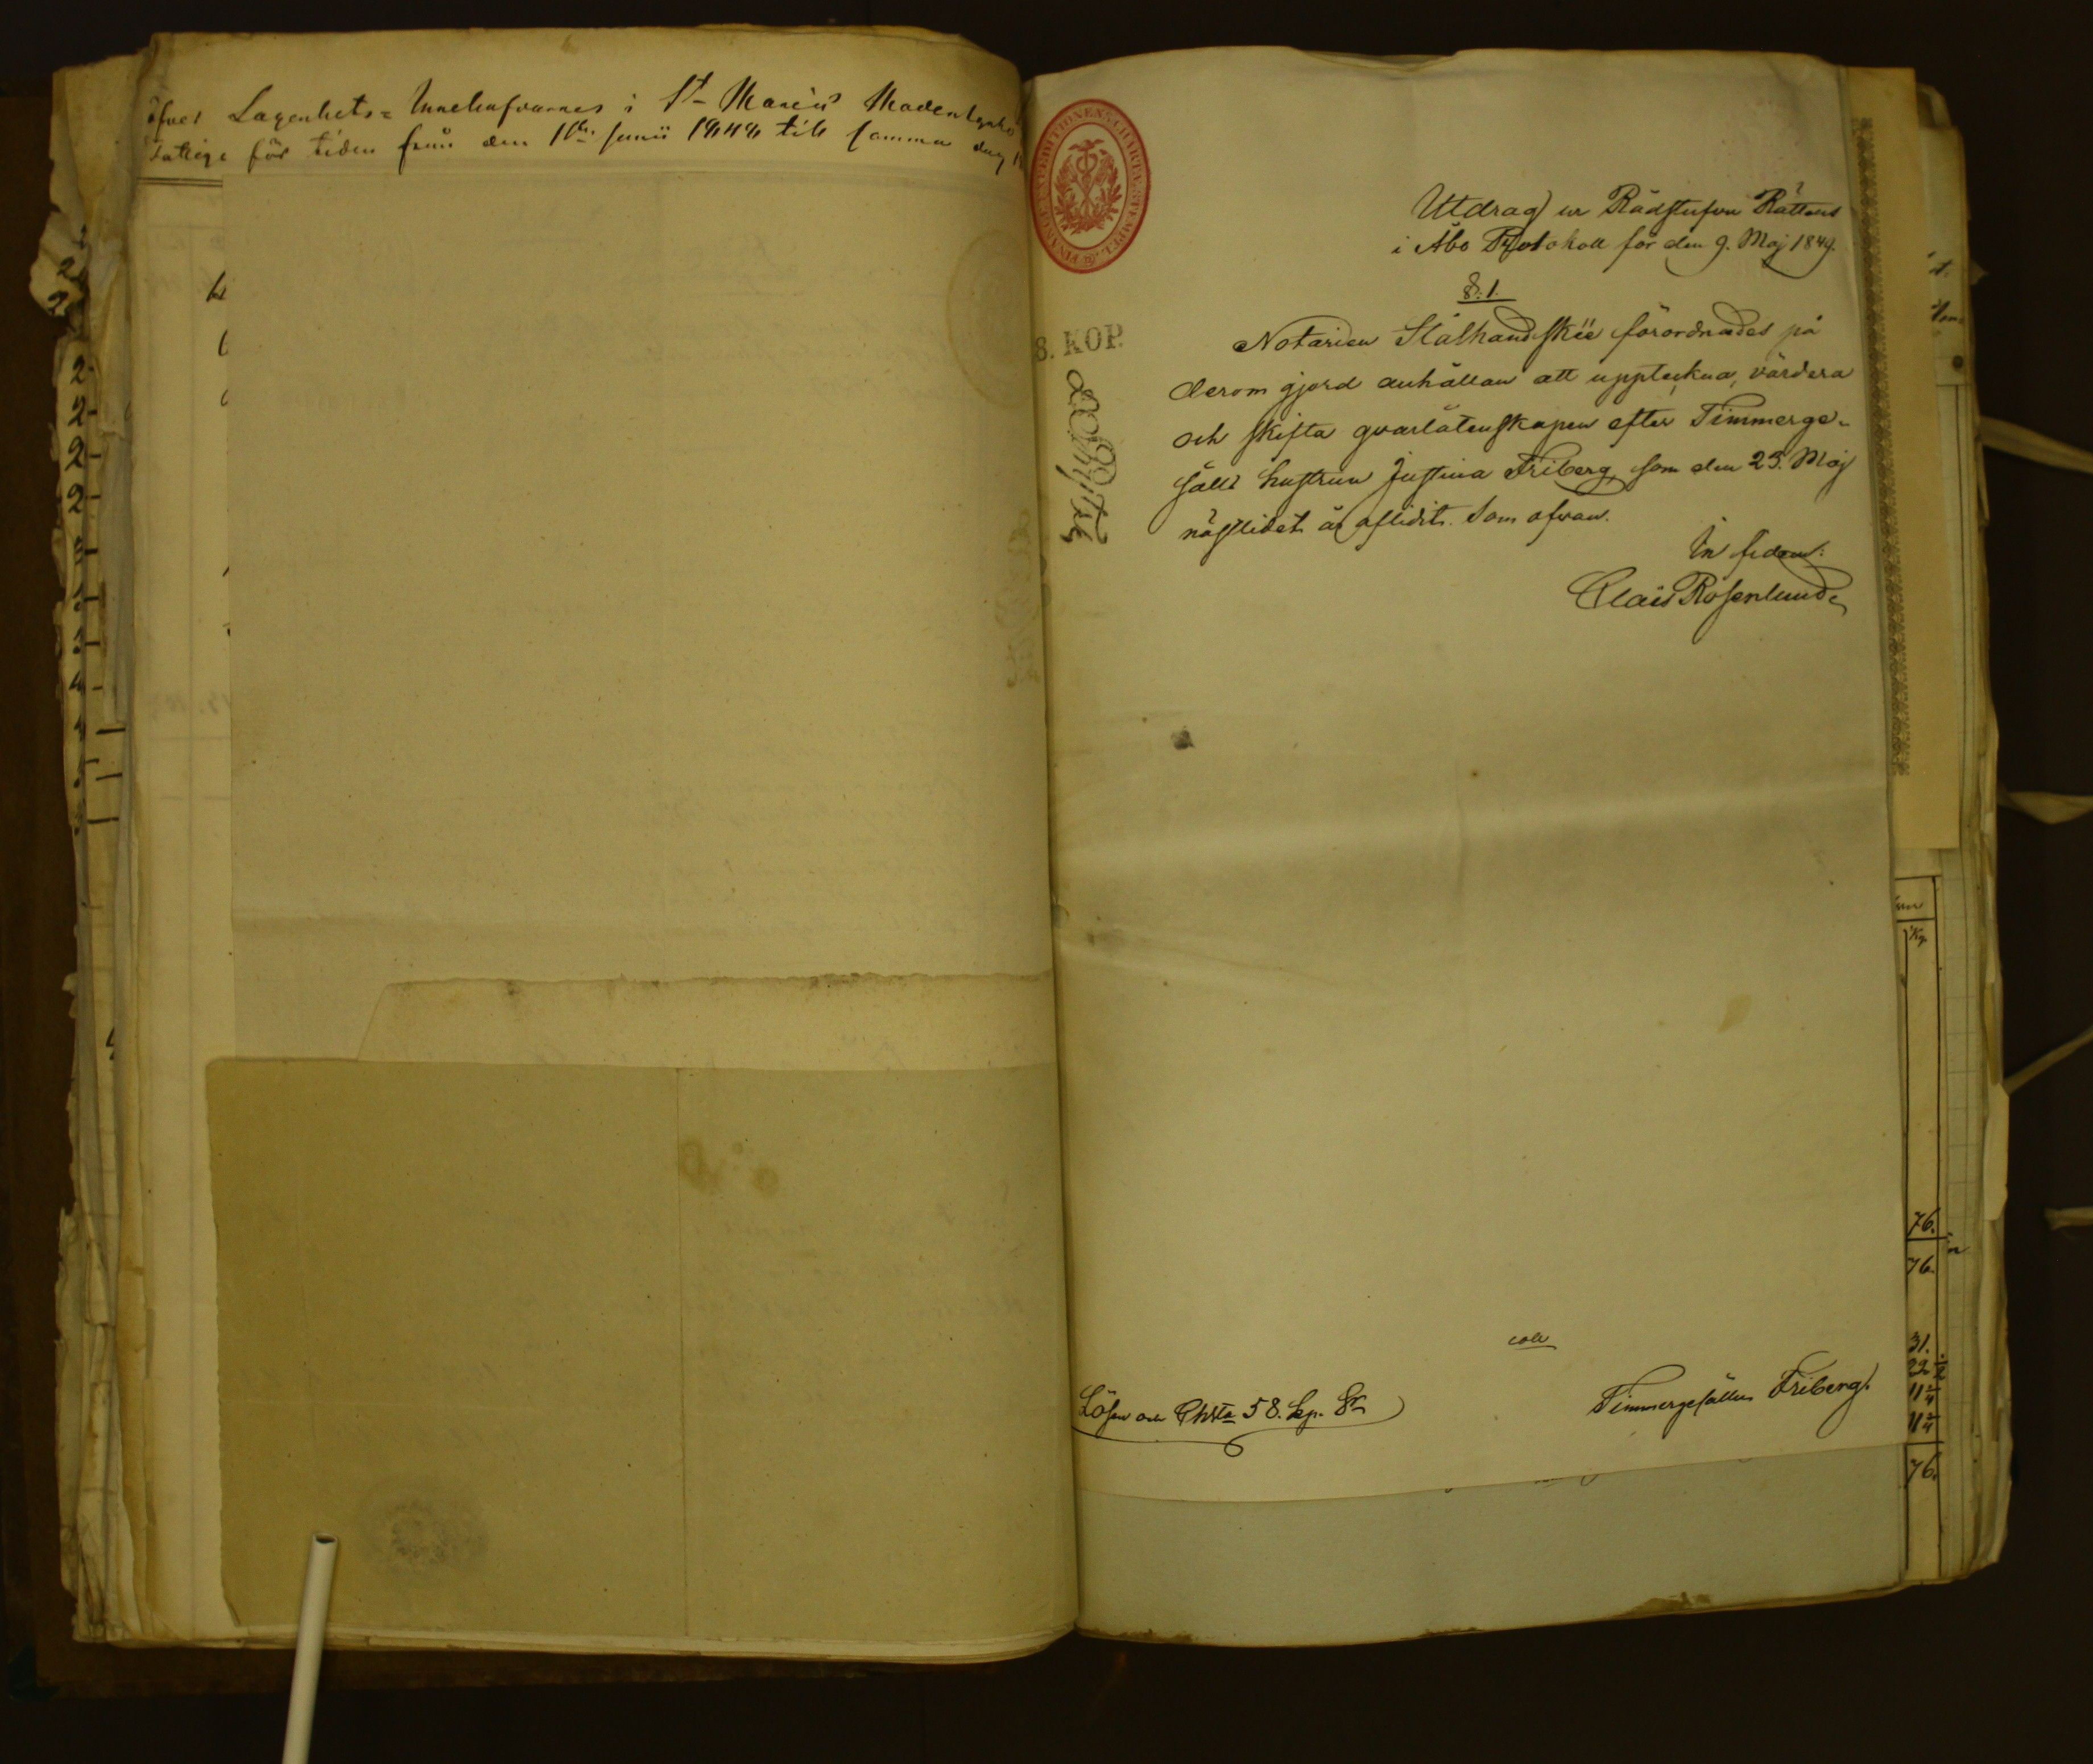 öfver Lägenhets= Innehafvarnes i St Mariæ
för tiden från den 1sta Junii 1848 till samma dag
FINANCE EXPEDITIONENS CHARTÆ STEMPEL
8. KOP.
Utdrag ur Rådstufvu Rättens
i Åbo Protokoll för den 9. Maj 1849.
§. 1.
Notarien Stålhandske förordnades på
derom gjord anhållan att uppteckna, värdera
och skifta qvarlåtenskapen efter Timmerge-
sälls hustrun Justina Friberg, som den 25. Maj
nästlidet år aflidit. Som ofvan.
In fidem:
Claës Rosenlund
coll
Lösen och Chta 58. kop. Sr
Timmergesällen Friberg.
76.
76.
31.
22 1/2
11 1/4
11 1/4
76.